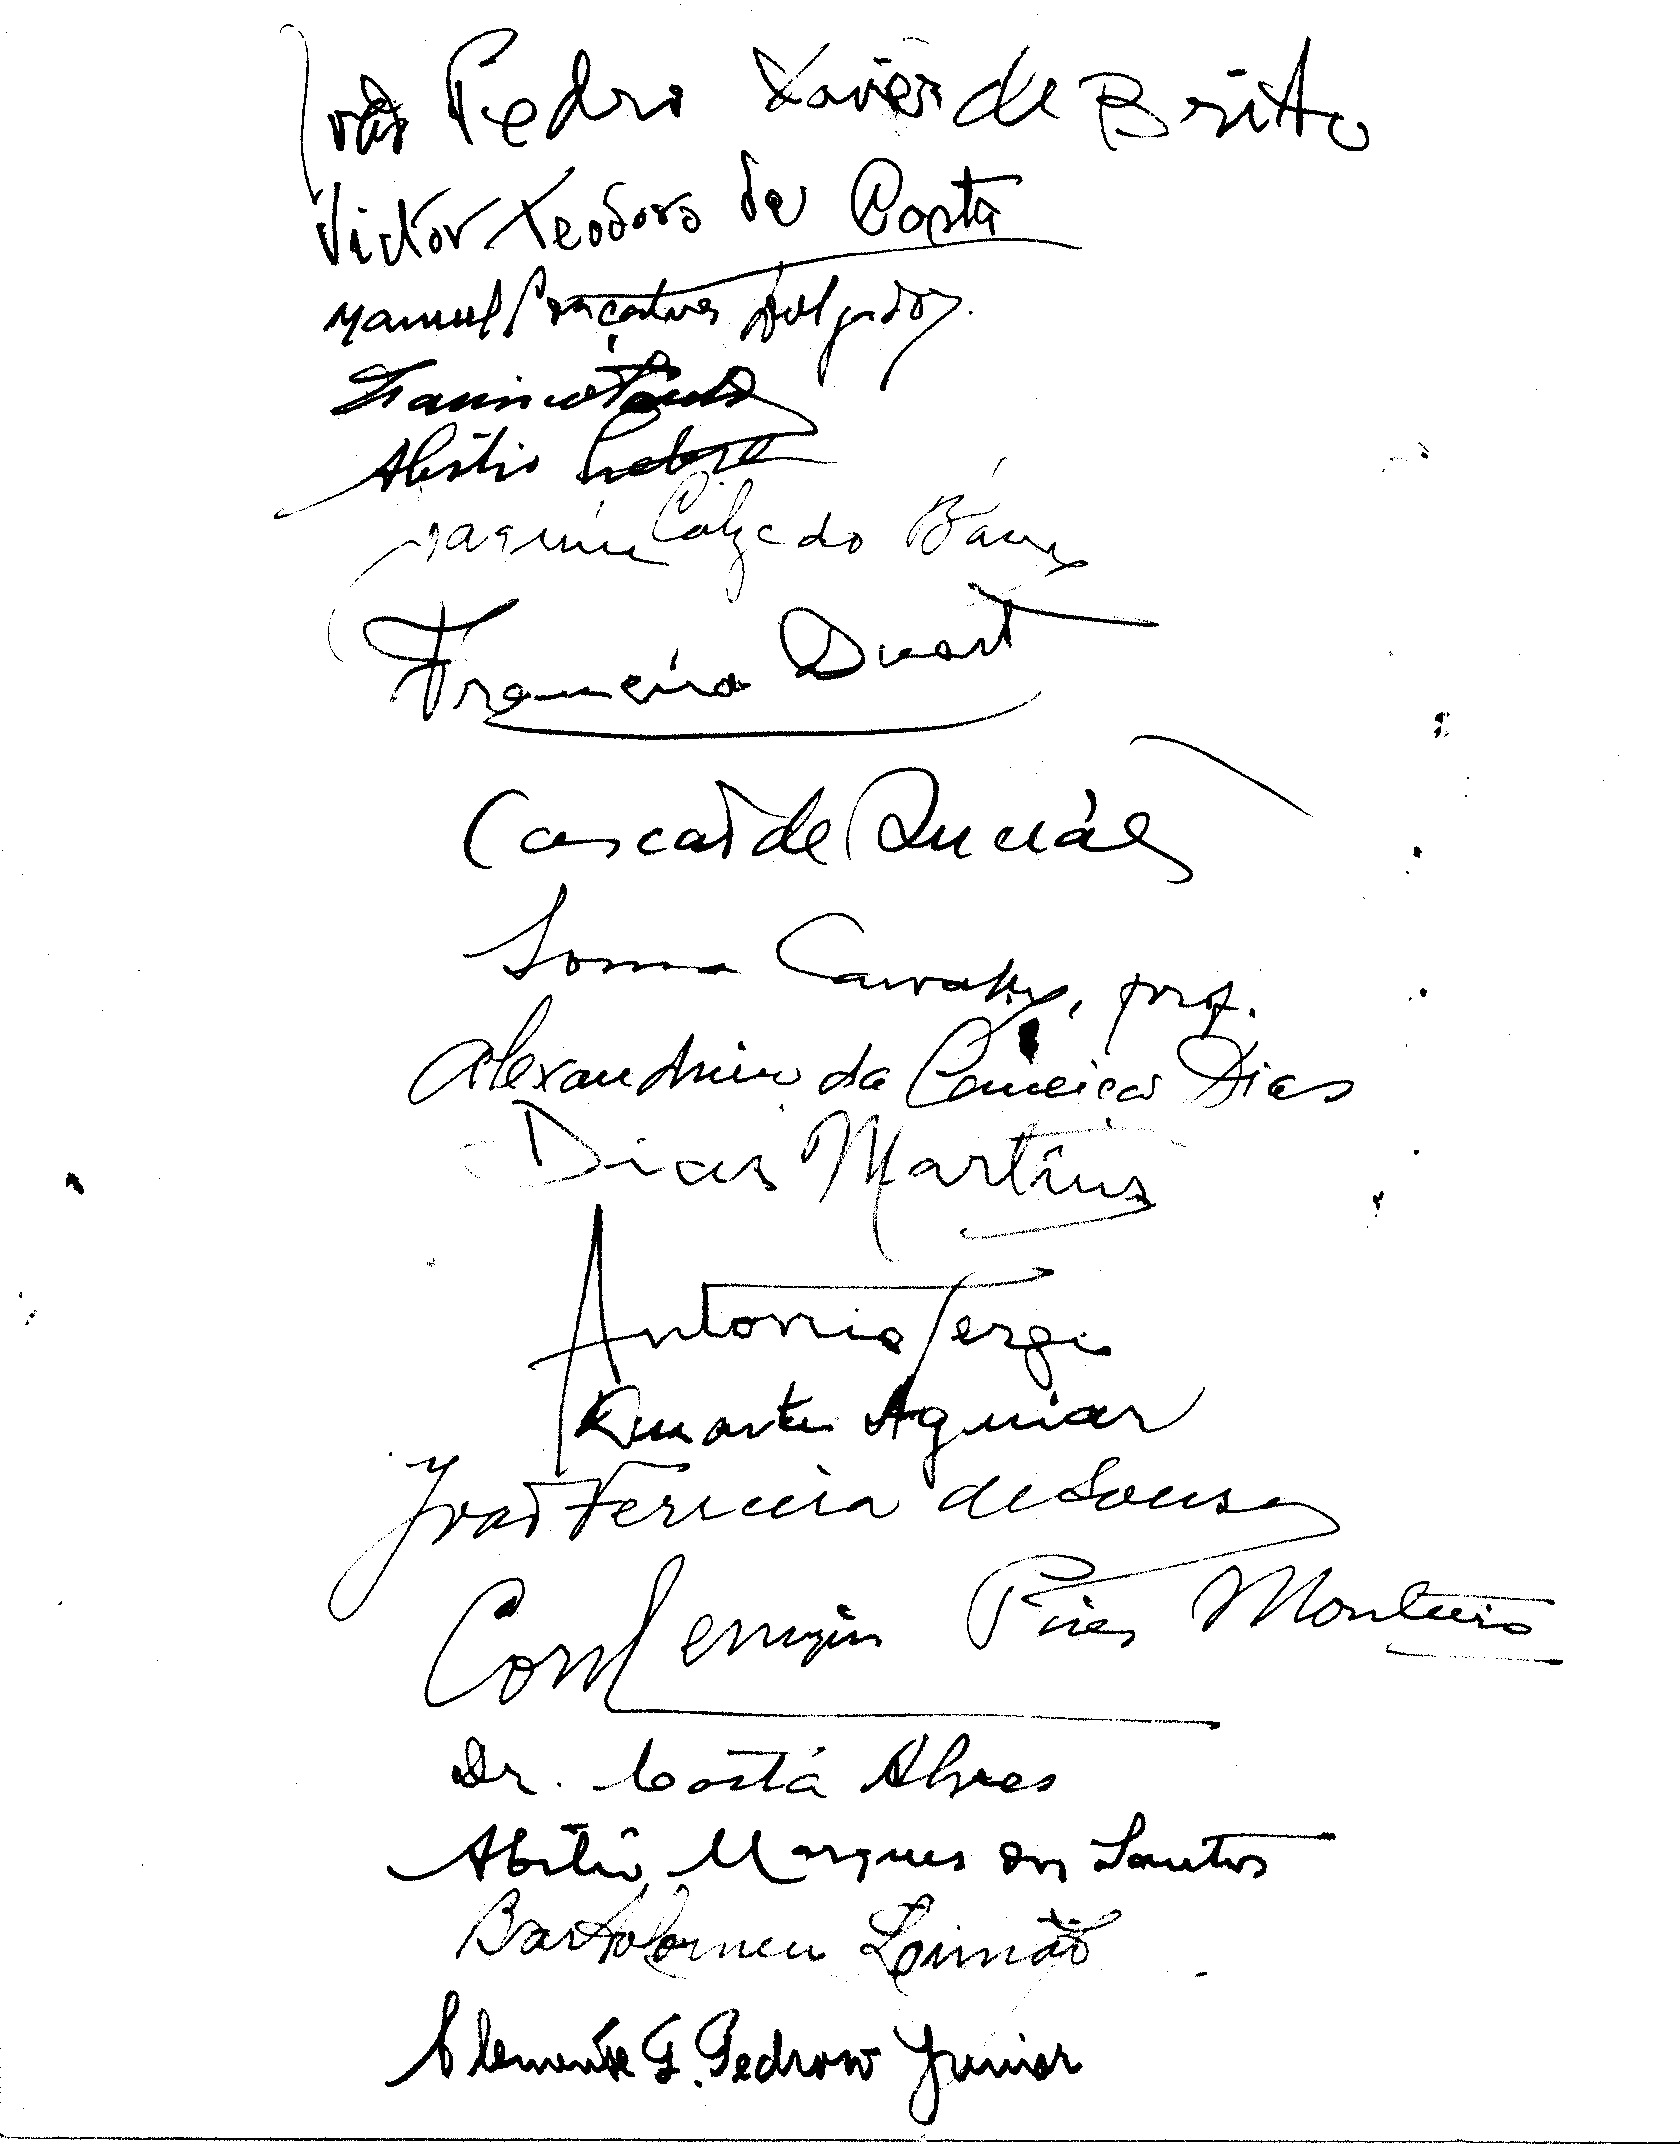 João Pedro Xavier de Brito
Victor Teodoro da Costa
Manuel Gonçalves Delgado
Francisco
Abílio
Joaquim Calçado
Duarte
de
Carvalho, prof.
Alexandrino da Conceição Dias
Dias Martins
Antonio Sergio
Duarte Aguiar
João Ferreira de Sousa
Pires Monteiro
Dr. Costa Alves
Abilio Marques dos Santos
Bartolomeu Limão
Clemente G. Pedroso Junior